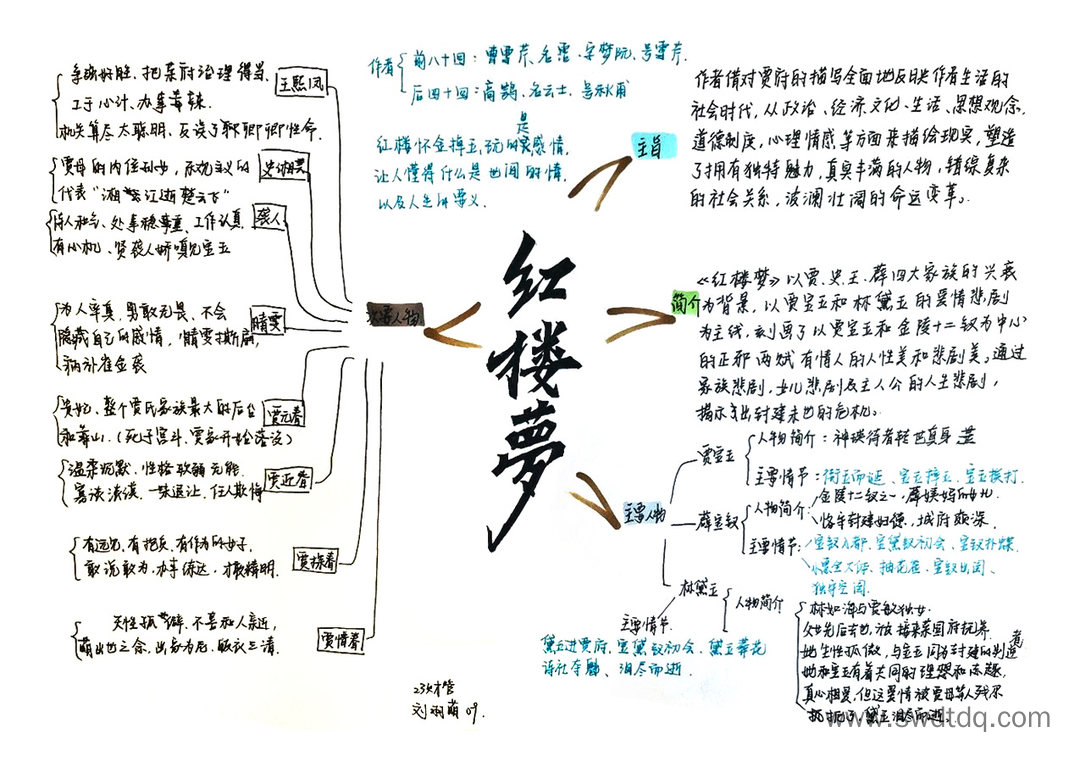 红楼夢
作者
前八十回：曹雪芹、名霑、字梦阮、号雪芹、
后四十回：高鹗、名云士、号秋甫
是
红楼怀金掉玉，玩的感情，
让人懂得什么是世间的情，
以及人生的要义。
主旨
作者借对贾府的描写全面地反映作者生活的
社会时代，从政治、经济文化、生活、思想观念、
道德制度，心理情感等方面来描绘现实，塑造
了拥有独特魅力，真实丰满的人物，错综复杂
的社会关系，波澜壮阔的命运变革。
简介
《红楼梦》以贾、史、王、薛四大家族的兴衰
为背景，以贾宝玉和林黛玉的爱情悲剧
为主线，刻画了以贾宝玉和金陵十二钗为中心
的正邪两赋有情人的人性美和悲剧美。通过
家族悲剧，女儿悲剧及主人公的人生悲剧，
揭示出封建末世的危机。
主要人物
贾宝玉
人物简介：神瑛侍者转世真身
主要情节：衔玉而诞、宝玉摔玉、宝玉挨打.
薛宝钗
人物简介：
金陵十二钗之一，薛姨妈的女儿
恪守封建妇德，城府颇深.
主要情节：
宝钗入都、宝黛钗初会、宝钗扑蝶.
小惠全大体、抽花签、宝钗出闺、
独守空闺.
林黛玉
人物简介
林如海与贾敏独女.
父母先后去世，被接来荣国府抚养.
她生性孤傲，与宝玉同为封建的叛逆者
她和宝玉有着共同的理想和志趣，
真心相爱，但这爱情被贾母等人残忍
扼杀，黛玉泪尽而逝。
主要情节
黛玉进贾府、宝黛钗初会、黛玉葬花
诗社夺魁、泪尽而逝
人物
王熙凤
争强好胜、把荣府治理得当、
工于心计、办事毒辣.
机关算尽太聪明、反误了卿卿卿性命.
史湘云
贾母的内侄孙女，乐观主义的
代表“湘江逝楚云飞”
袭人
待人和气、处事稳重、工作认真
有心机、贤袭人娇嗔宝玉
晴雯
为人率真，勇敢无畏、不会
隐藏自己的感情，晴雯撕扇，
病补雀金裘
贾元春
贵妃、整个贾氏家族最大的后台
和靠山.（死于宫斗、贾家开始落没）
贾迎春
温柔沉默、性格软弱无能.
一味退让、任人欺侮
贾探春
有远见，有抱负，有作为的女子.
敢说敢为、办事练达，才敏精明.
贾惜春
天性孤僻、不喜和人亲近，
萌出世之念、出家为尼、皈依三清.
23财管
刘羽萌 09.
www.swdtdq.com